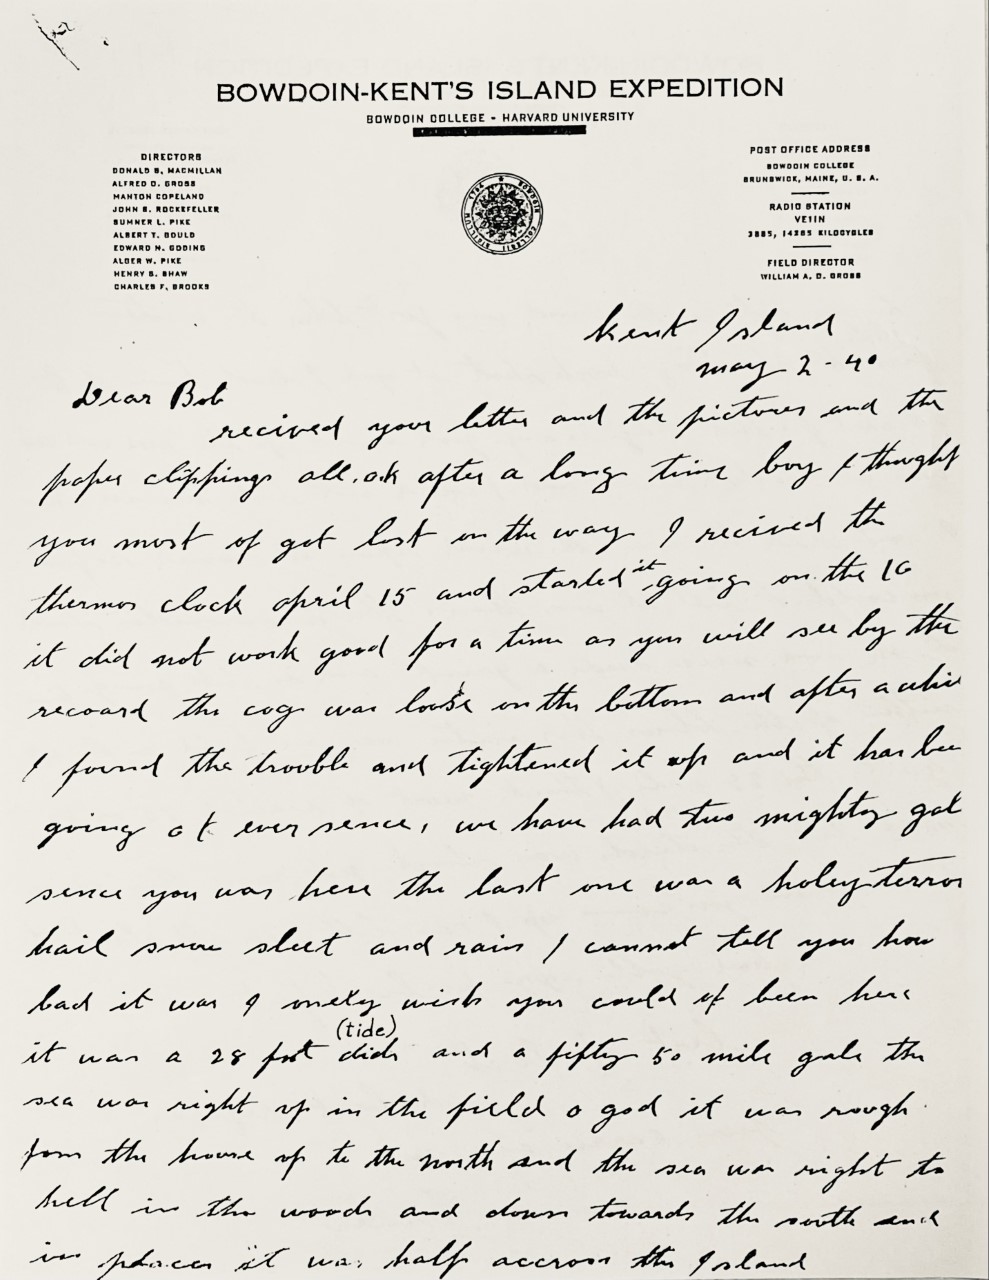 BOWDOIN-KENT'S ISLAND EXPEDITION
BOWDOIN COLLEGE - HARVARD UNIVERSITY
DIRECTORS
DONALD B. MACMILLAN
ALFRED O. GROSS
MANTON COPELAND
JOHN S. ROCKEFELLER
SUMNER L. PIKE
ALBERT T. GOULD
EDWARD H. GODING
ALGER W. PIKE
HENRY S. SHAW
CHARLES F. BROOKS
POST OFFICE ADDRESS
BOWDOIN COLLEGE
BRUNSWICK, MAINE, U. S. A.
RADIO STATION
VE1IN
3885, 14285 KILOCYCLES
FIELD DIRECTOR
WILLIAM A. O. GROSS
Kent Island
may 2 - 40
Dear Bob
recived your letter and the pictures and the
paper clippings all. ok after a long time boy I thought
you most of got lost on the way I recived the
thermos clock april 15 and started it going on the 16
it did not work good for a time as you will see by the
recoard the cog was loose on the bottom and after a while
I found the trouble and tightened it up and it has bee
going ok ever sence, we have had two mighty gal
sence you was here the last one was a holey terror
hail snow sleet and rain I cannot tell you how
bad it was I onely wish you could of been here
it was a 28 foot dide (tide) and a fifty 50 mile gale the
sea was right up in the field o god it was rough
from the house up to the north end the sea was right to
hell in the woods and down towards the south end
in places it was half accross the Island